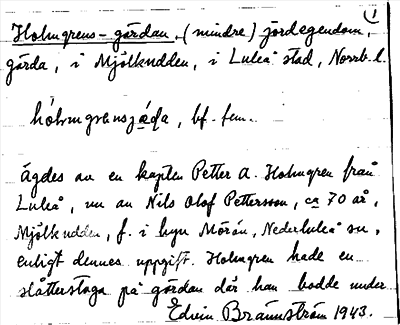 1
Holmgrens-gärdan, (mindre) jordegendom,
gärda, i Mjölkudden, i Luleå stad, Norrb. l.
bf. fem.
Ägdes av en kapten Petter A. Holmgren från
Luleå, nu av Nils Olof Pettersson, ca 70 år,
Mjölkudden, f. i byn Mörån, Nederluleå sn,
enligt dennes uppgift. Holmgren hade en
slåtterstuga på gärdan där han bodde under
Edvin Brännström 1943.